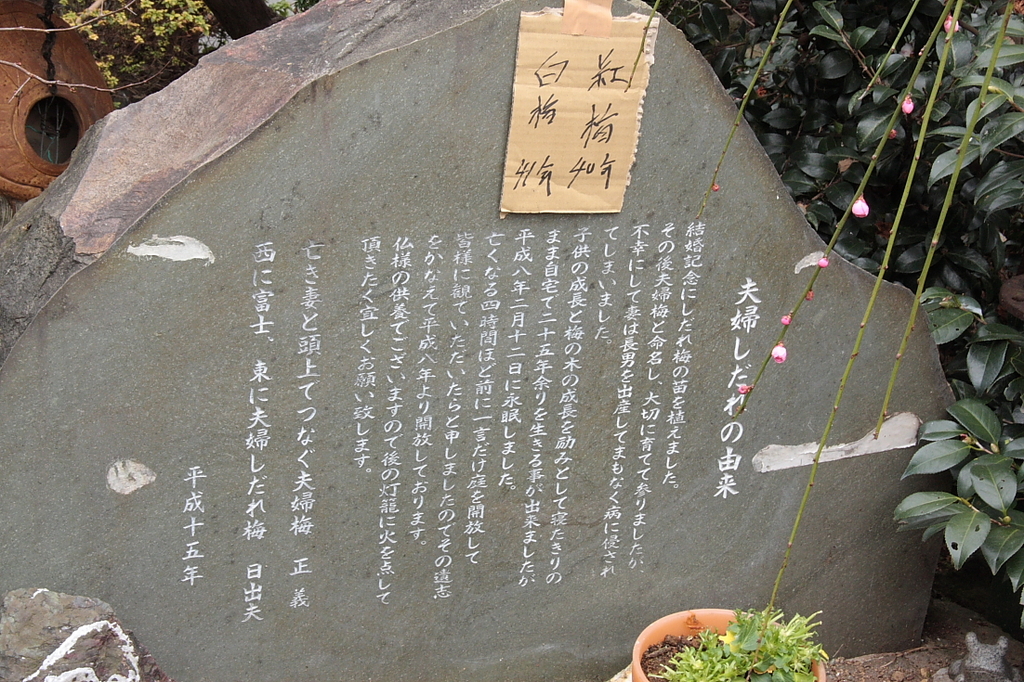 紅梅 40年
白梅 41年
夫婦しだれの由来
結婚記念にしだれ梅の苗を植えました。
その後夫婦梅と命名し、大切に育てて参りましたが、
不幸にして妻は長男を出産してまもなく病に侵され
てしまいました。
子供の成長と梅の木の成長を励みとして寝たきりの
まま自宅で二十五年余りを生きる事が出来ましたが
平成八年二月十二日に永眠しました。
亡くなる四時間ほど前に一言だけ庭を開放して
皆様に観ていただいたらと申しましたのでその遺志
をかなえて平成八年より開放しております。
仏様の供養でございますので後の灯籠に火を点して
頂きたく宜しくお願い致します。
亡き妻と頭上でつなぐ夫婦梅 正義
西に富士、東に夫婦しだれ梅 日出夫
平成十五年